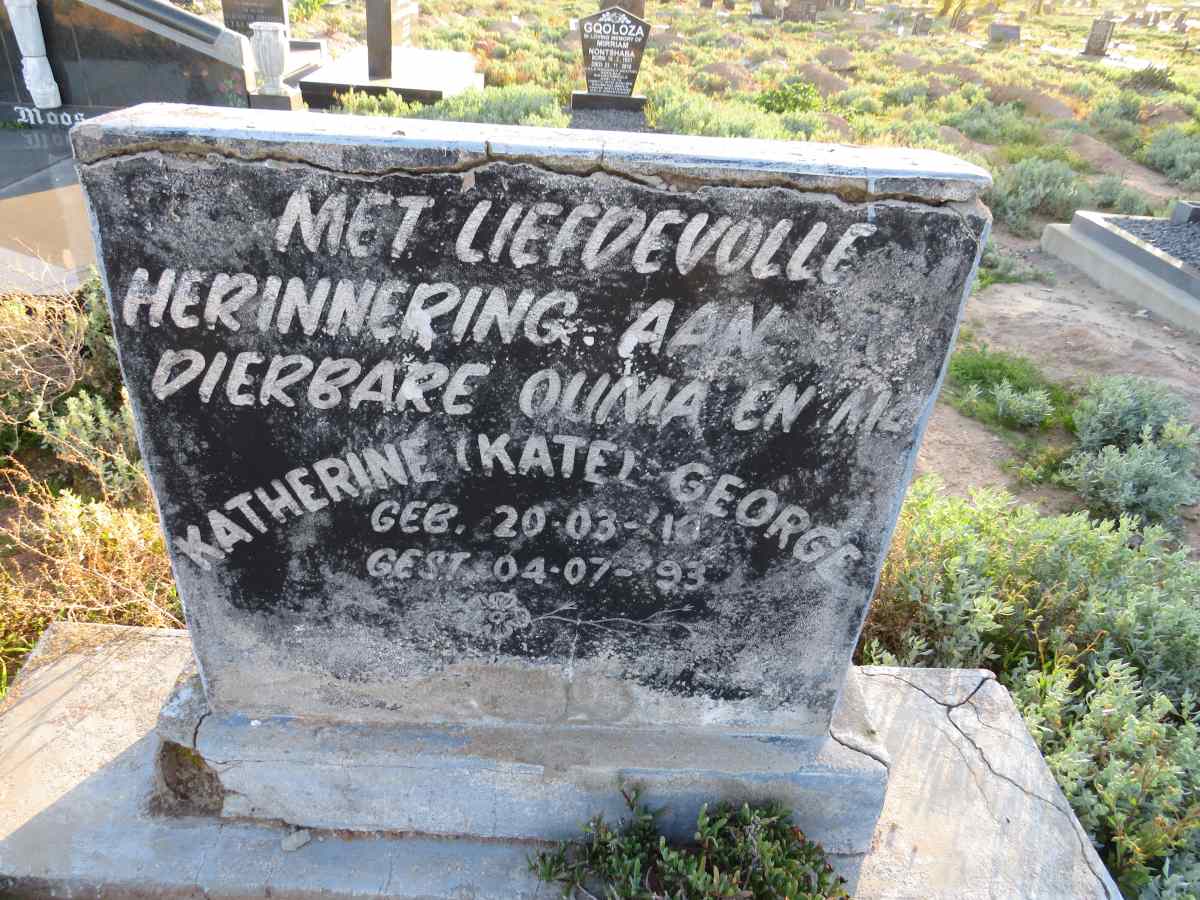 Moos
GQOLOZA
IN LOVING MEMORY OF
MIRRIAM
NONTSHABA
MET LIEFDEVOLLE
HERINNERING. AAN
DIERBARE OUMA EN
KATHERINE (KATE). GEORGE
GEB. 20-03-
GEST. 04-07-'93